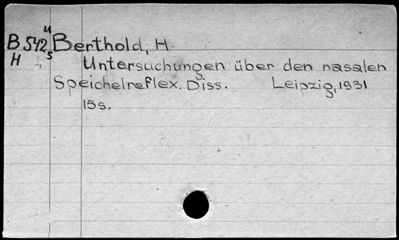 B542 u/s Berthold, H.
H Untersuchungen über den nasalen
Speichelreflex. Diss. Leipzig, 1931
15s.